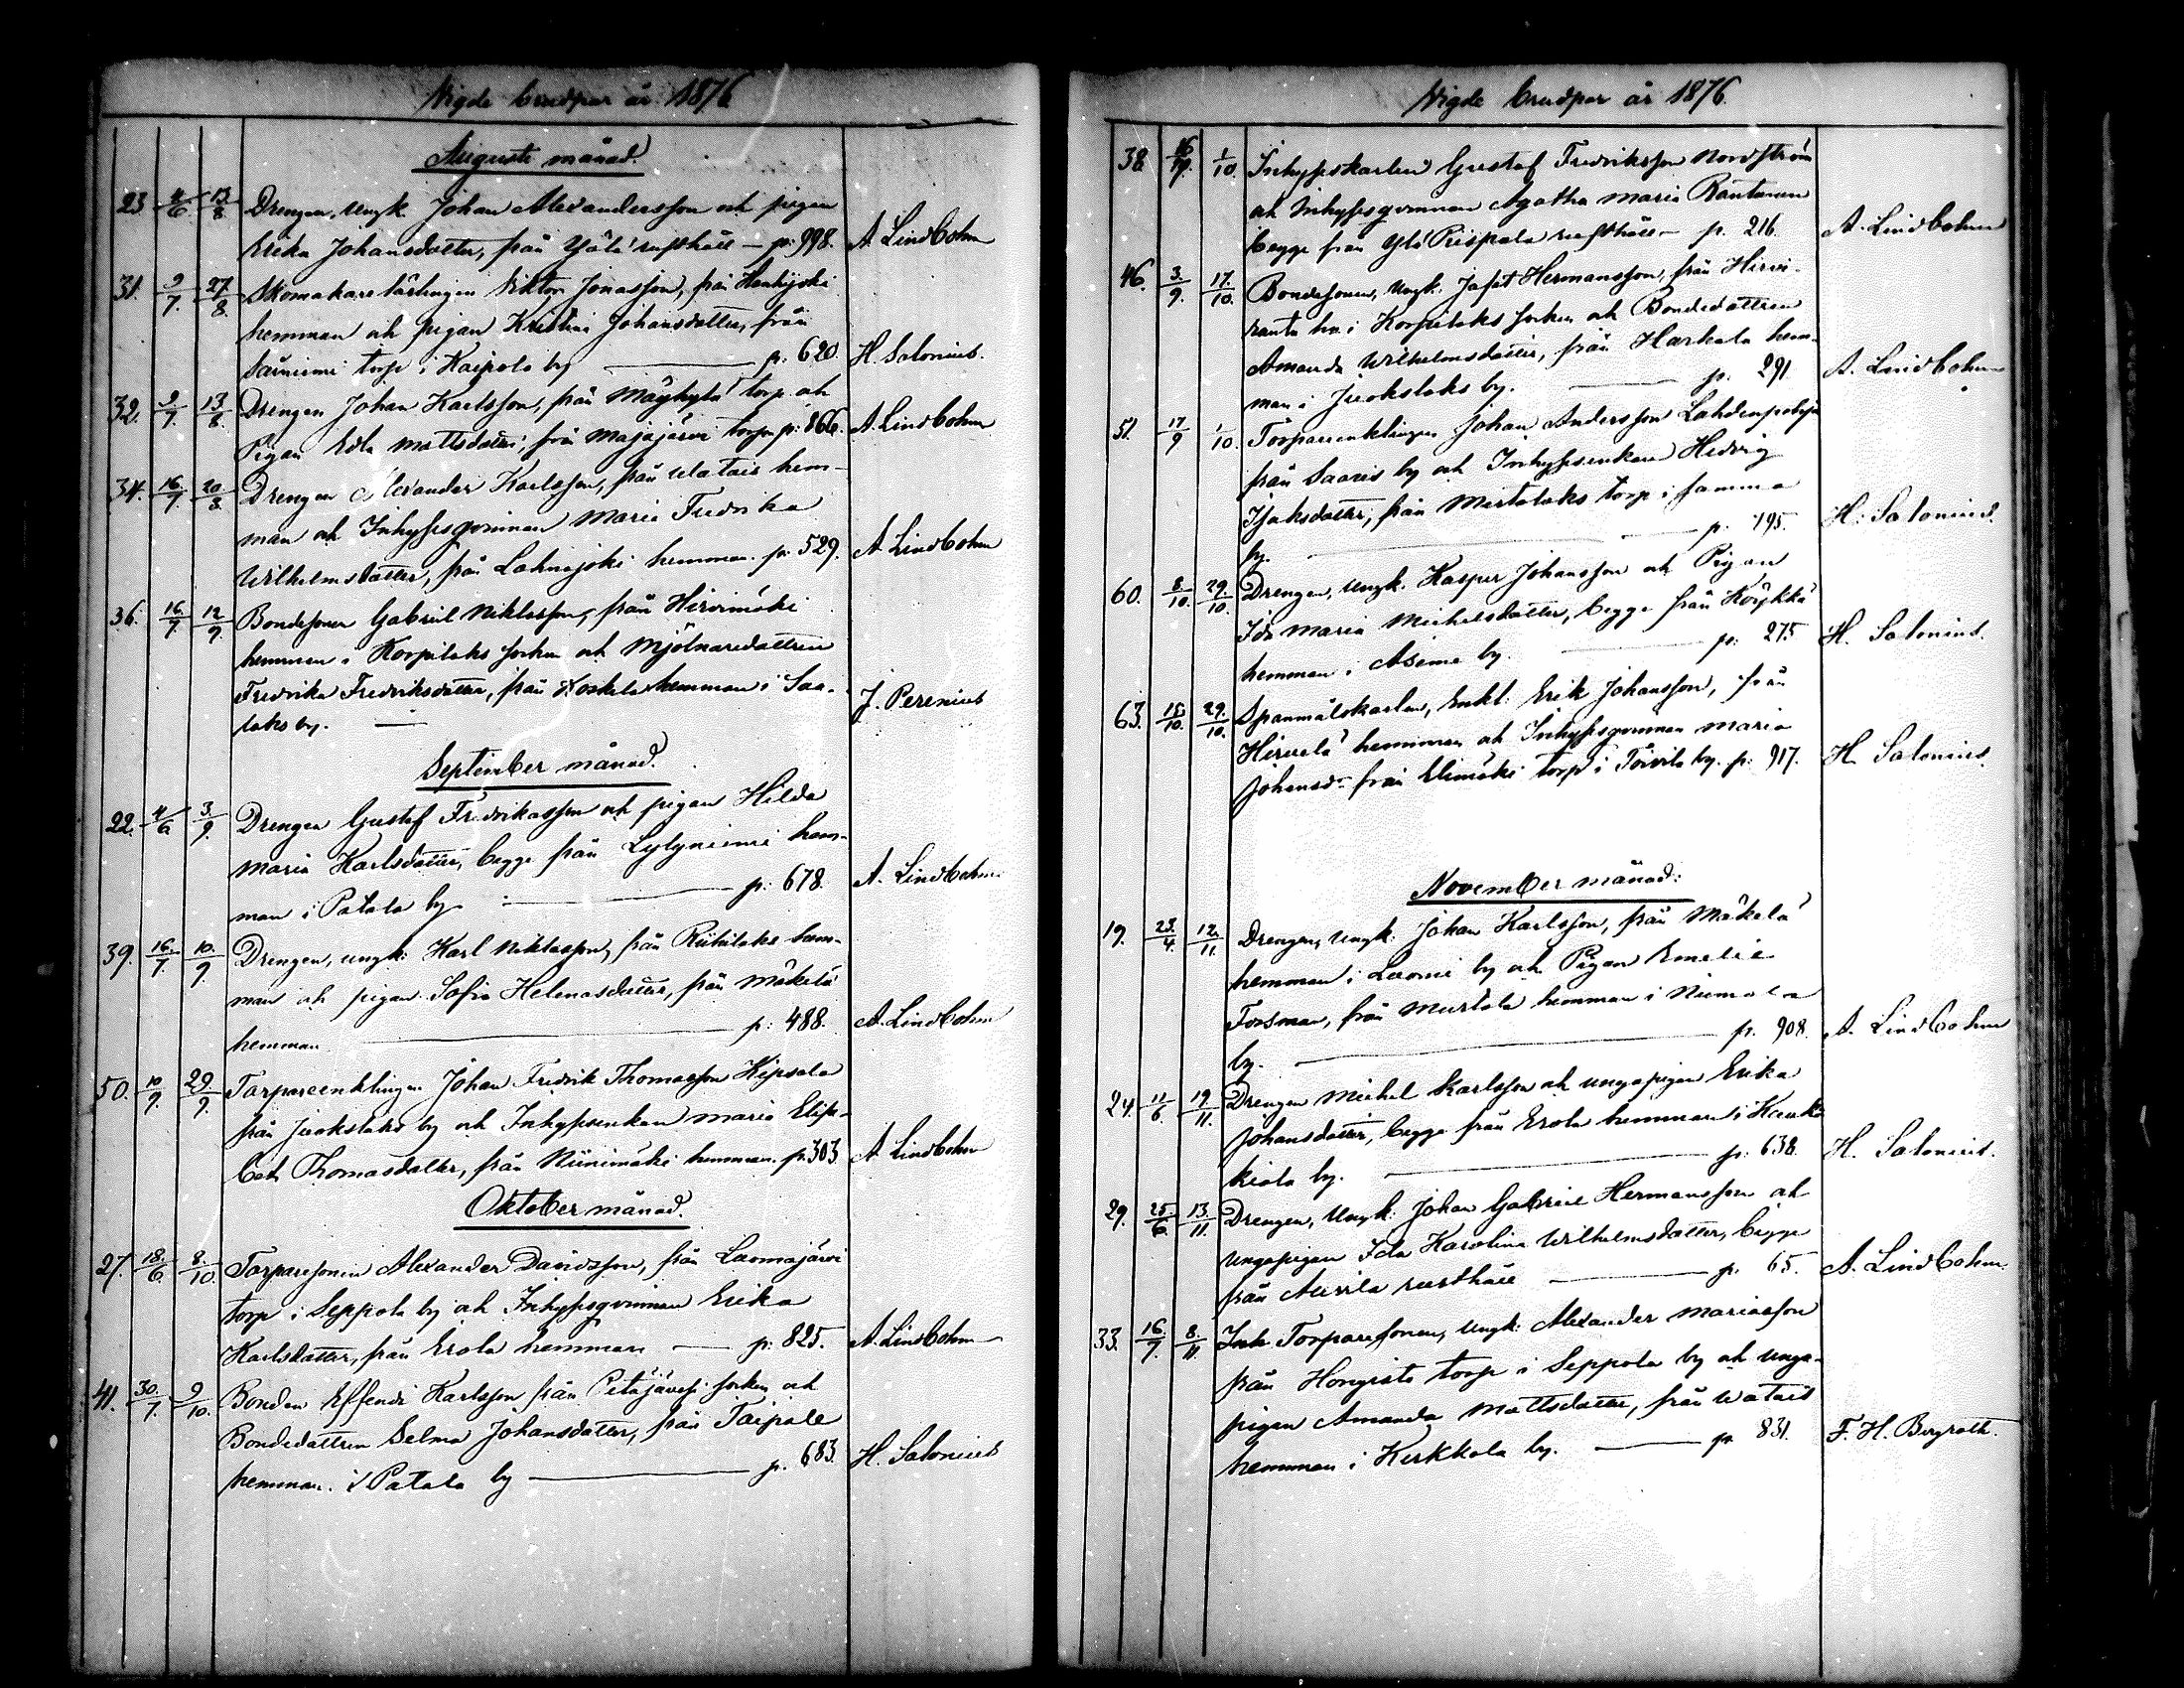 Vigde brudpar år 1876
Augusti månad.
23 4/6 13/8 Drengen, ungk. Johan Alexandersson och pigan
Ericka Johansdotter, från Yöla rusthåll — p: 998. A. Lindbohm
31. 9/7. 27./8. Skomakarelärlingen Viktor Jonasson, från Hankijoki
hemman och pigan Kristina Johansdotter, från
Särniemi torp i Kaipola by — p: 620. H. Salonius.
32. 9/7. 13/8. Drengen Johan Karlsson, från Mäyhylä torp och
Pigan Edla Mattsdotter, från Majajärvi torp p: 866. A. Lindbohm
34. 16/7. 20/8 Drengen Alexander Karlsson, från Watais hem-
man och Inhysesqvinnan Maria Fredrika
Wilhelmsdotter, från Lahnajoki hemman. p: 529. A. Lindbohm
36. 16/7. 12/9. Bondesonen Gabriel Niklasson, från Hirvimäki
hemman i Korpilaks socken och Mjölnaredottren
Fredrika Fredriksdotter, från Koskela hemman i Saa-
laks by. — J. Perenius
September månad.
22. 4/6 3./9. Drengen Gustaf Fredriksson och pigan Hilda
Maria Karlsdotter, begge från Lylyniemi hem-
man i Patala by — p: 678. A. Lindbohm
39. 16./7. 10./9. Drengen, ungk: Karl Niklasson, från Riihilaks hem-
man och pigan Sofia Helenasdotter, från Mäkelä
hemman — p: 488. A. Lindbohm
50. 10/9. 29./9. Torpareenklingen Johan Fredrik Thomasson Kipsala
från Juokslaks by och Inhysesenkan Maria Elisa-
beth Thomasdotter, från Niinimäki hemman. p. 303 A. Lindbohm
Oktober månad.
27. 18./6. 8./10. Torparesonen Alexander Davidsson, från Laomajärvi
torp i Seppola by och Inhysesqvinnan Erika
Karlsdotter, från Erola hemman — p: 825. A. Lindbohm
41. 30./7. 9/10. Bonden Effendi Karlsson från Petäjävesi socken och
Bondedottren Selma Johansdotter, från Taipale
hemman i Patala by — p. 683. H. Salonius
Vigde brudpar år 1876.
38. 16/7. 1/10. Inhyseskarlen Gustaf Fredriksson Nordström
och Inhysesqvinnan Agatha Maria Rantanen
begge från Ylä Prispala rusthåll — p. 216. A. Lindbohm
46. 3./9. 17./10. Bondesonen, Ungk: Jafet Hermansson, från Hirvi-
ranta hn i Korpilaks socken och Bondedottren
Amanda Wilhelmsdotter, från Harkala hem-
man i Juokslaks by. — p. 291 A. Lindbohm
51. 17/9 1/10. Torpareenklingen Johan Andersson Lahdenpohja
från Saaris by och Inhysesenkan Hedvig
Isaksdotter, från Mertalaks torp i samma
by. — p: 195. H. Salonius.
60. 8/10. 29./10. Drengen, Ungk. Kasper Johansson och Pigan
Ida Maria Michelsdotter, begge från Köykkä
hemman i Asema by. — p: 275 H. Salonius.
63. 15./10. 29./10. Spanmålskarlen, Enkl: Erik Johansson, från
Hirvelä hemman och Inhysesqvinnan Maria
Johansdr från Elimäki torp i Toivila by. p: 917. H. Salonius
November månad:
19. 23./4. 12./11. Drengen, Ungk. Johan Karlsson, från Mäkelä
hemman i Luomi by och Pigan Emelie
Forsman, från Murtola hemman i Niemola
by. — p. 908. A. Lindbohm
24. 11/6 19./11. Drengen Michel Karlsson och ungapigan Erika
Johansdotter, begge från Erola hemman i Kauk-
kiola by. — p: 638. H. Salonius.
29. 25/6. 13./11. Drengen, Ungk: Johan Gabriel Hermansson och
ungapigan Ida Karolina Wilhelmsdotter, begge
från Auvila rusthåll — p. 65. A. Lindbohm.
33. 16/7. 8./11. Inh. Torparesonen, Ungk: Alexander Mariasson
från Hongisto torp i Seppola by och unga-
pigan Amanda Mattsdotter, från Watais
hemman i Kerkkola by. — p. 831. F. H. Bergroth.